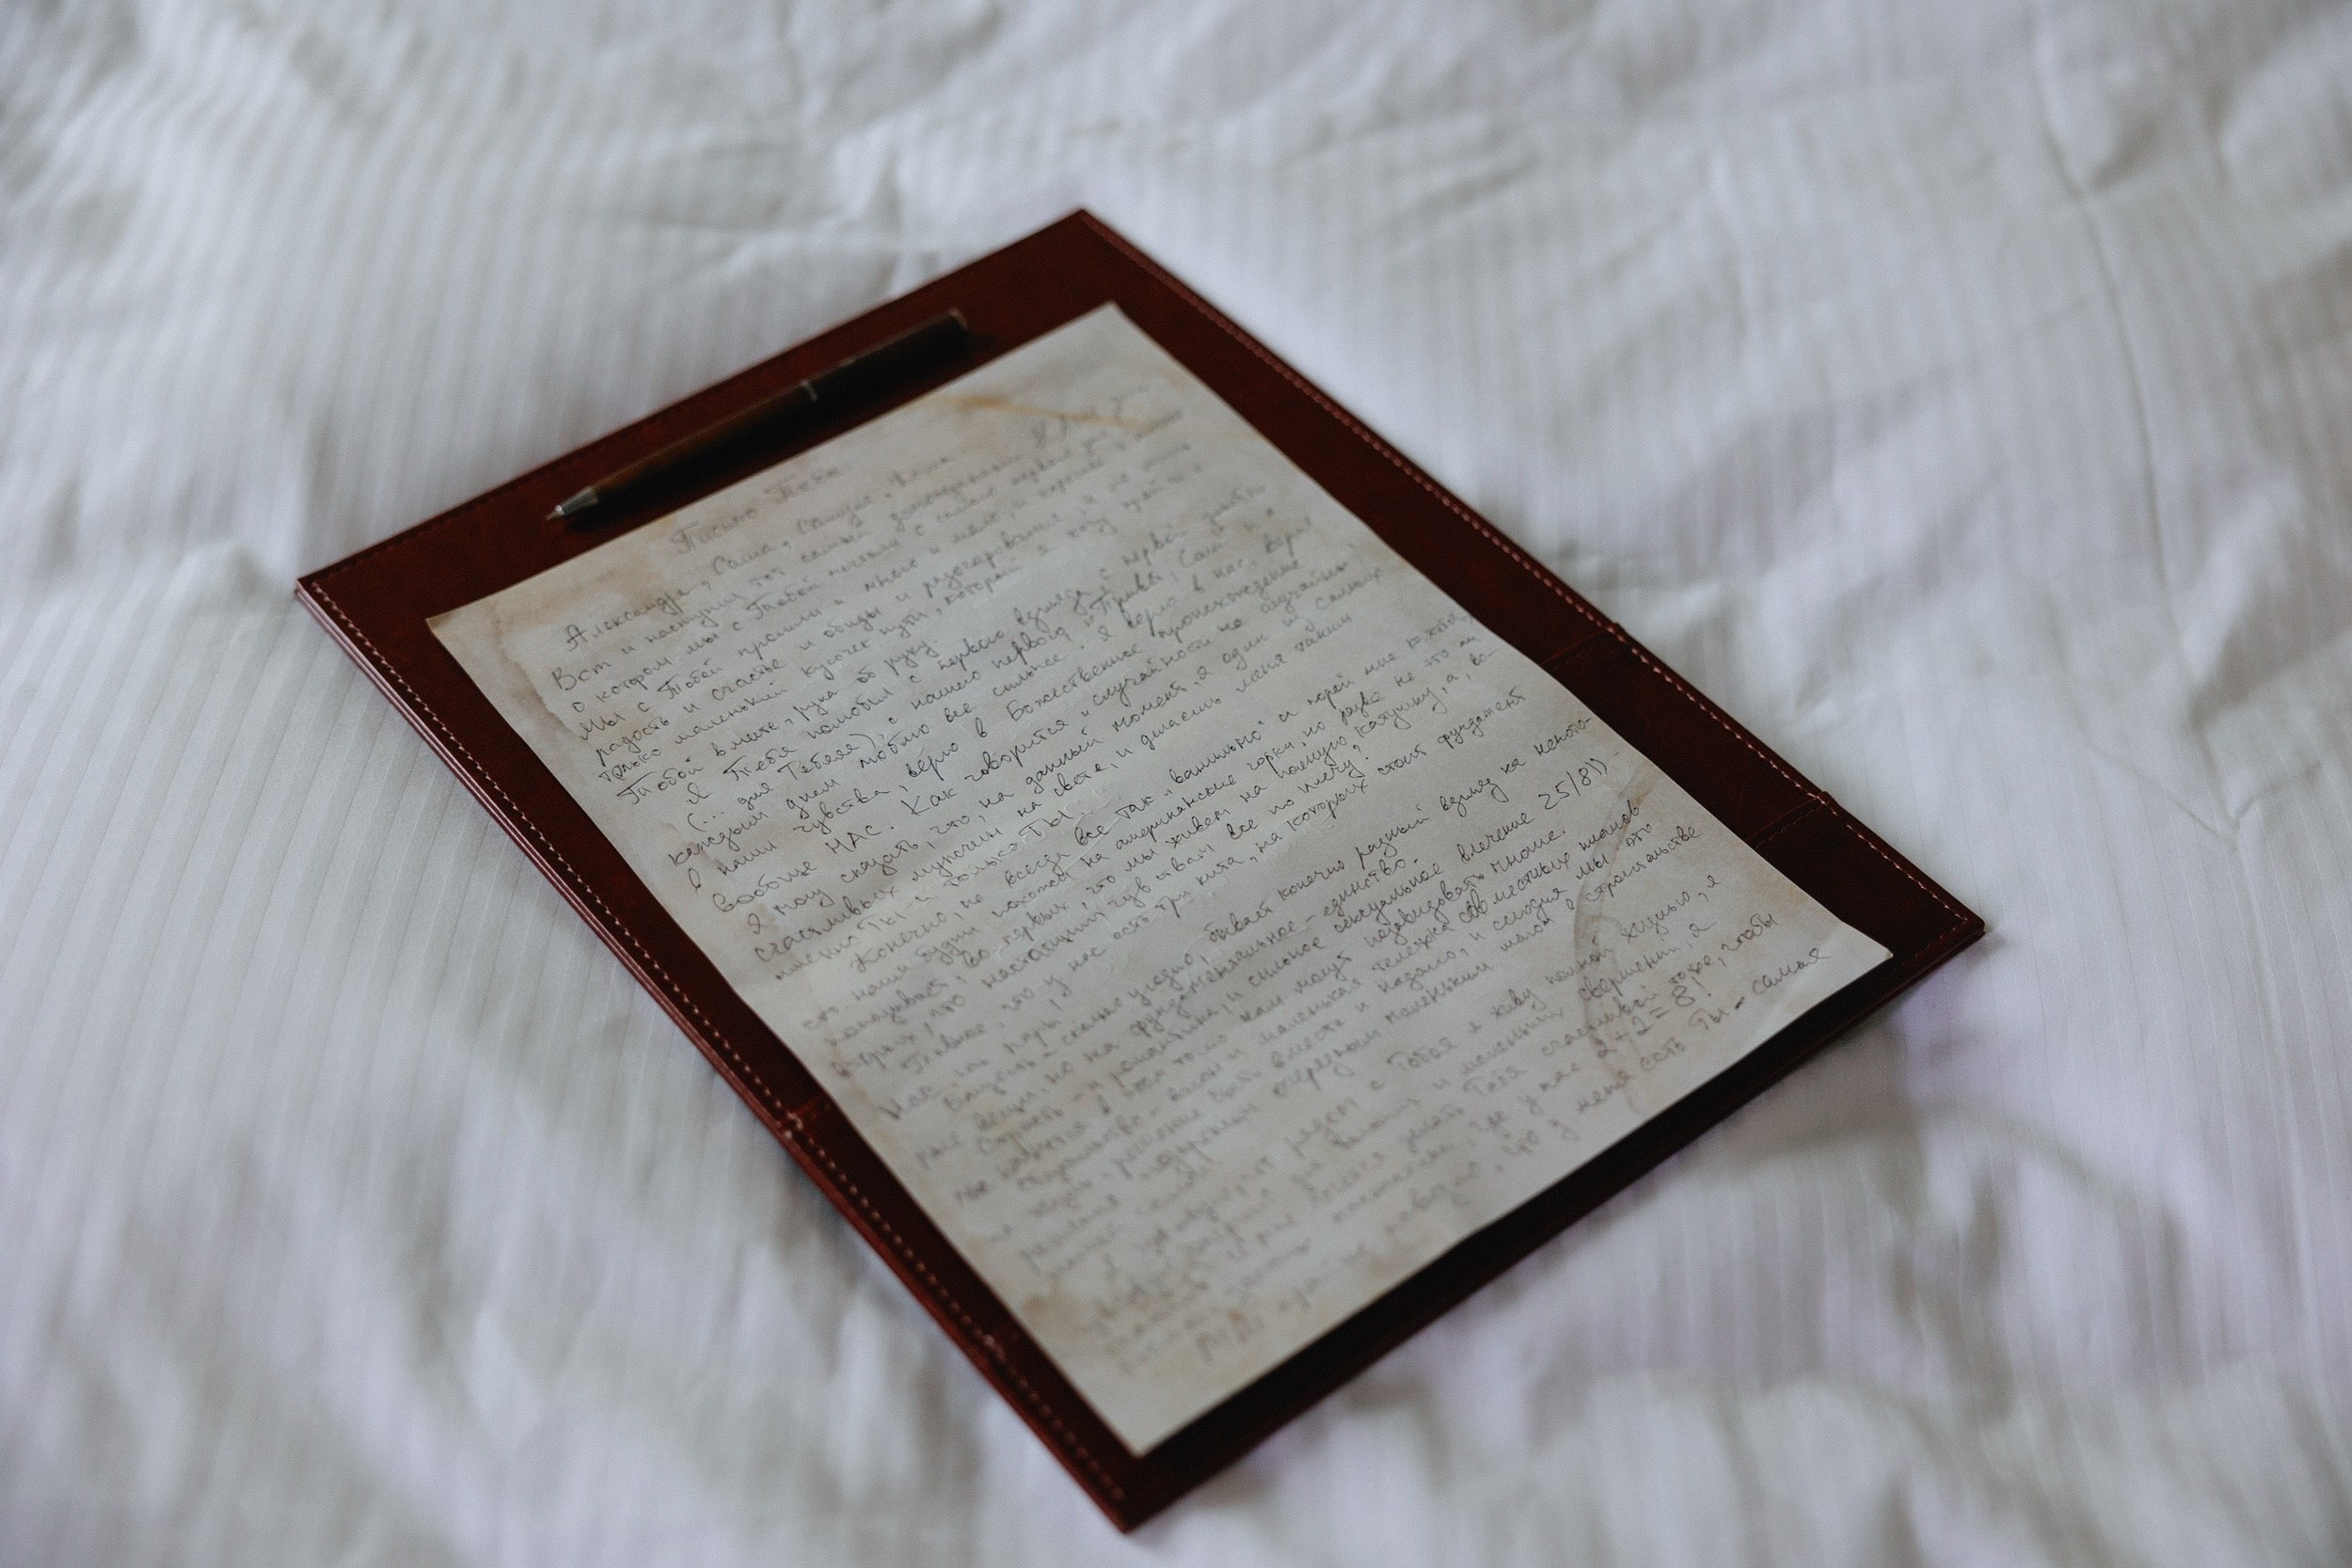 Письмо Тебе.
Александра, Саша, Сашуля,
Вот и наступил тот самый долгожданный
о котором мы с Тобой мечтали с самого первого дня
Мы с Тобой прошли и много и мало, и
радость и счастье и обиды и разочарования, и
только маленький кусочек пути, который я хочу пройти
с Тобой вместе, рука об руку.
Я Тебя полюбил с первого взгляда, с первой
(... для Тебя), с нашего первого "Привет, Саш" и с
каждым днем люблю все сильнее. Я верю в нас, верю
в наши чувства, верю в Божественное происхождение
вообще НАС. Как говорится "случайности не случайны"
Я могу сказать, что, на данный момент, я один из самых
счастливых мужчин на свете, и делаешь меня таким
именно Ты и только Ты...
Конечно, не всегда все так "ванильно" и порой мне кажется,
что наши будни похожи на американские горки, но разве не это ли
показывает, во-первых, что мы живем на полную катушку, а, во-
вторых, что настоящим чувствам все по плечу?
Главное, что у нас есть три кита, на которых стоит фундамент
нас, как пары,
Впусть - сколько угодно, бывает конечно разный взгляд на некото-
рые вещи, но на фундаментальное - единство.
Страсть - и романтика, и сильное сексуальное влечение 25/8))) -
мне кажется в этом точно нам могут позавидовать многие.
вагон и маленькая тележка совместных планов
на жизнь, решение быть вместе и надолго, и сегодня мы это
решение очередным маленьким шагом в строительстве
нашей семьи.
рядом с Тобой я живу полной жизнью, я
для больших и маленьких свершений, я
делать Тебя счастливой тоже, чтобы
где у нас 2+2=8!
повезло, что у меня есть Ты - самая